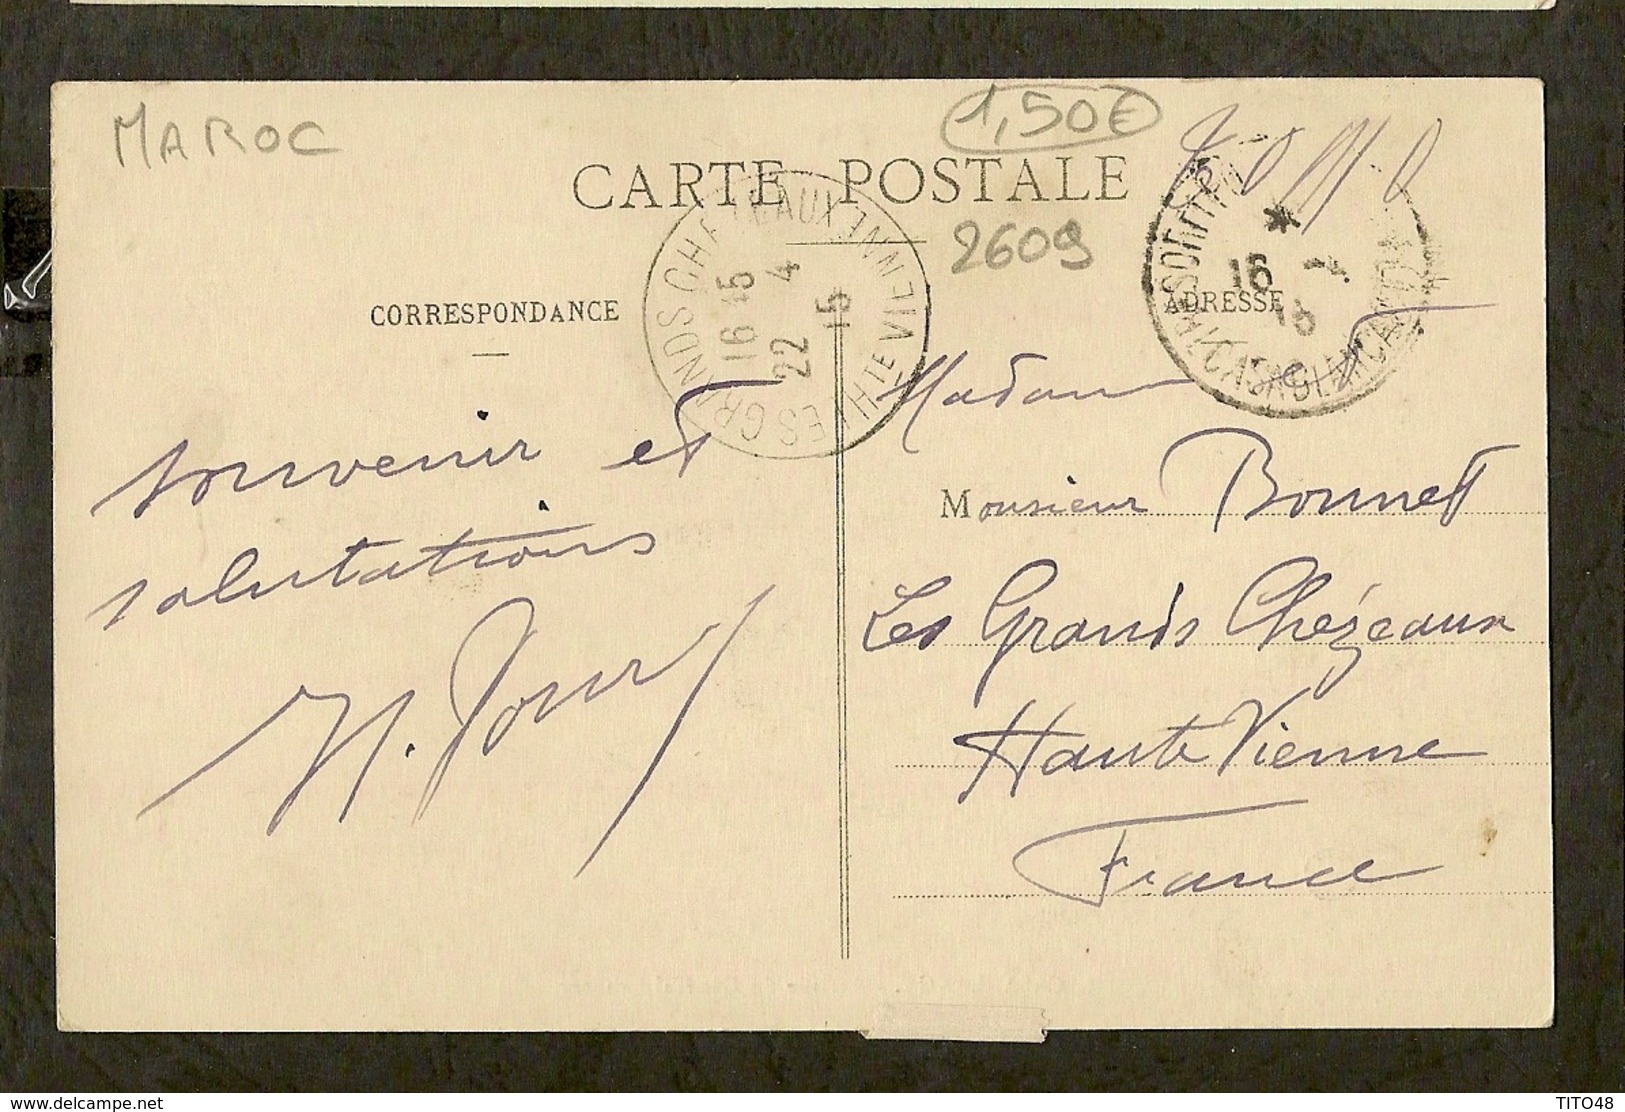 MAROC
1,50€
CARTE POSTALE
2609
CORRESPONDANCE
ADRESSE
LES GRANDS CHEZEAUX
HTE VIENNE
16 45
22 4
15
*
16
15
CASABLANCA
souvenir et
salutations
Madame et
Monsieur Bonnet
Les Grands Chézeaux
Haute Vienne
France
TITO48
delcampe.net